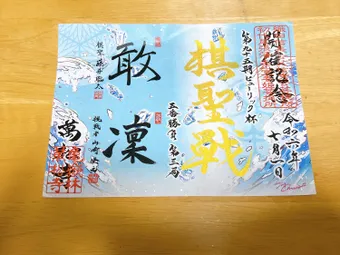 開催記念
令和六年
七月一日
第九十五期ヒューリック杯
棋聖戦
五番勝負 第三局
凜
敢
棋聖 藤井聡太
挑戦者 山崎隆之
萬松寺